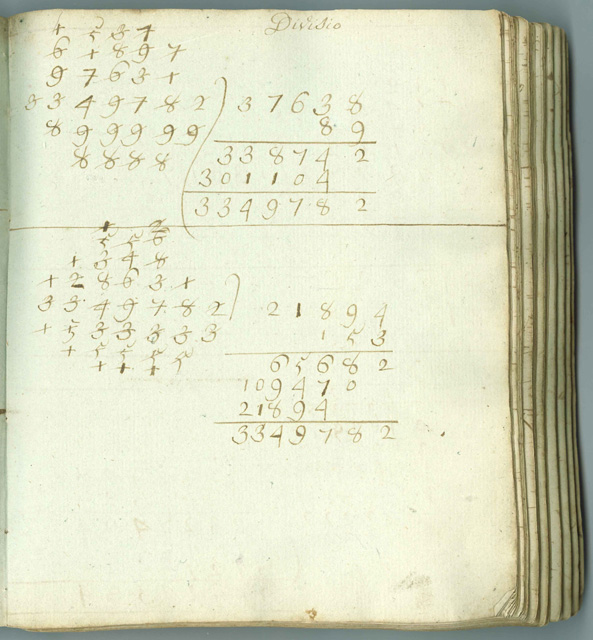 Divisio
1 5 3 4
6 1 8 9 7
9 7 6 3 1
3 3 4 9 7 8 2 ) 3 7 6 3 8
8 9 9 9 9 9 8 9
8 8 8 8 3 3 8 7 4 2
3 0 1 1 0 4
3 3 4 9 7 8 2
5 5 6
1 3 4 8
1 2 8 6 3 1
3 3 4 9 7 8 2 ) 2 1 8 9 4
1 5 3 3 3 3 3 1 5 3
1 5 5 5 5 6 5 6 8 2
1 1 1 1 0 9 4 7 0
2 1 8 9 4
3 3 4 9 7 8 2